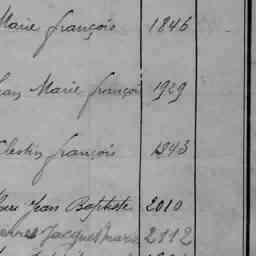 Marie françois 1846
Jean Marie françois 1929
Célestin françois 1843
Jean Baptiste 2010
Jacques Marie 2112